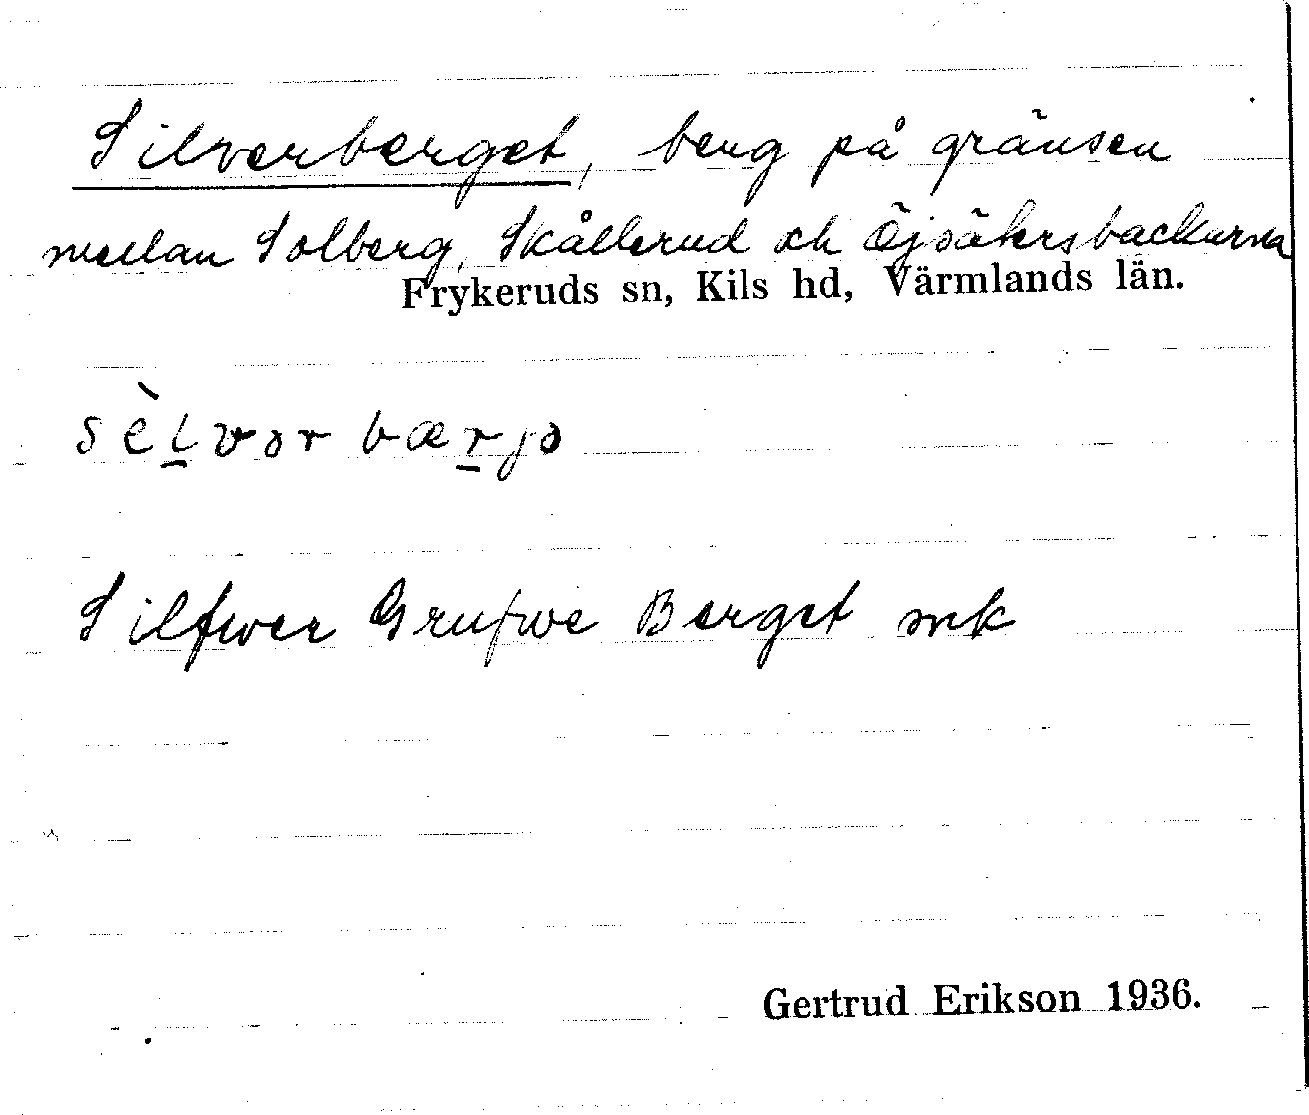 Silverberget, berg på gränsen
mellan Solberg, Skållerud och Öjsäkersbackarna
Frykeruds sn, Kils hd, Värmlands län.
sèl̠vər bær̠jə
Silfwer Grufwe Berget mk
Gertrud Erikson 1936.